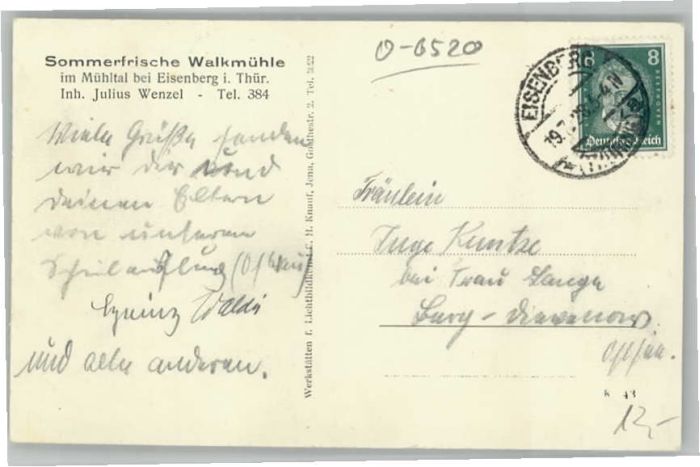 Sommerfrische Walkmühle
im Mühltal bei Eisenberg i. Thür.
Inh. Julius Wenzel - Tel. 384
O-6520
EISENBERG
8
Deutsches Reich
Viele Grüße senden
wir dir und
deinen Eltern
von unserem
Schulausflug
Heinz Waldi
und alle anderen.
Werkstätten f. Lichtbildkunst E. H. Knauf, Jena, Goethestr. 2. Tel.
Fräulein
Inge Kuntze
bei Frau Lange
Berg-Dievenow
Ostsee.
K 43
12,-